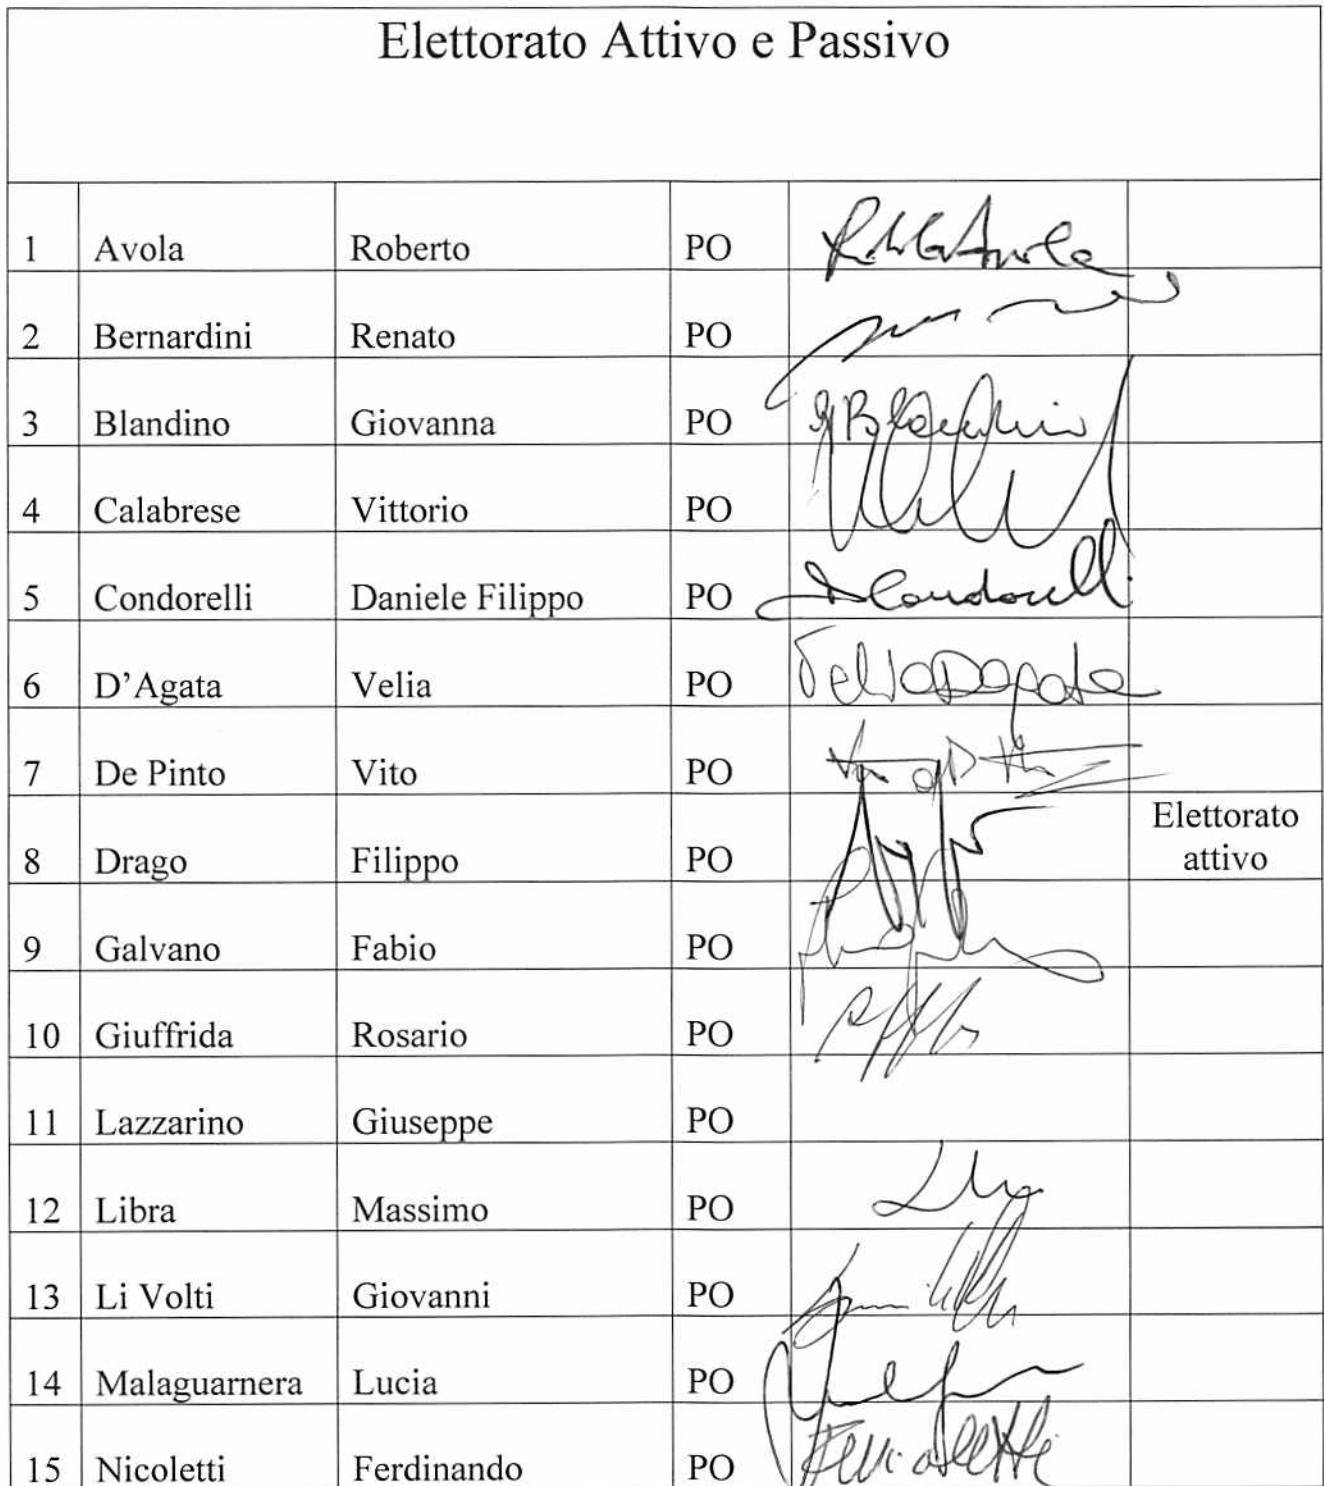 Elettorato Attivo e Passivo
1 Avola Roberto PO
2 Bernardini Renato PO
3 Blandino Giovanna PO
4 Calabrese Vittorio PO
5 Condorelli Daniele Filippo PO DCondorelli
6 D'Agata Velia PO Velia D'Agata
7 De Pinto Vito PO
8 Drago Filippo PO Elettorato attivo
9 Galvano Fabio PO
10 Giuffrida Rosario PO
11 Lazzarino Giuseppe PO
12 Libra Massimo PO
13 Li Volti Giovanni PO
14 Malaguarnera Lucia PO
15 Nicoletti Ferdinando PO